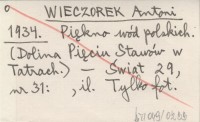 WIECZOREK Antoni
1934. Piękno wód polskich.
(Dolina Pięciu Stawów w
Tatrach.) — Świat 29,
nr 31: , il. Tylko fot.